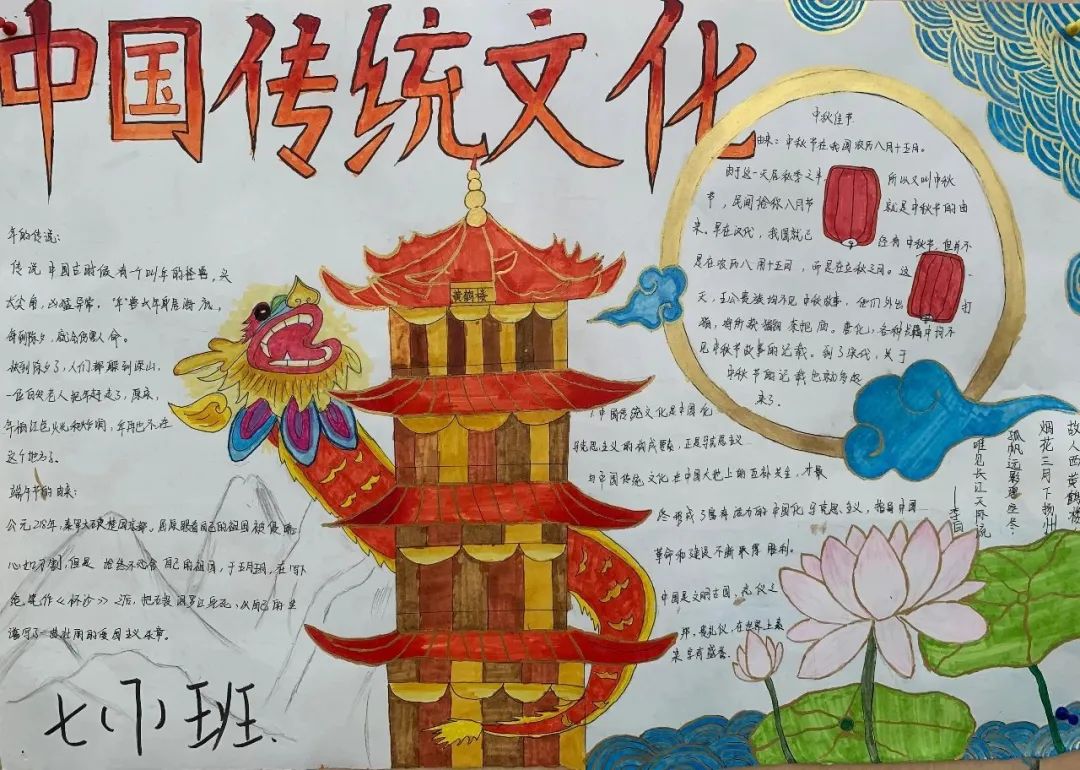 中国传统文化
年的传说:
传说中国古时候有一个叫年的怪兽,头
大尖角,凶猛异常,年兽长年身居海底,
每到除夕,就会伤害人命。
快到除夕了,人们都躲到深山,
一位白发老人把年赶走了,原来,
年怕红色火光和炸响,年再也不在
这个地方了。
端午节的由来:
公元278年,秦军大破楚国京都,屈原眼看自己的祖国被侵略,
心如刀割,但是始终不忍舍自己的祖国,于五月五日,在写下
绝笔作《怀沙》之后,抱石投汨罗江身死,以自己的生
谱写了一曲壮丽的爱国主义乐章。
七(1)班
黄鹤楼
中秋佳节
由来:中秋节在我国农历八月十五日。
由于这一天居秋季之半 所以又叫中秋
节,民间俗称八月节 就是中秋节的由
来。早在汉代,我国就已 经有中秋节,但并不
是在农历八月十五日,而是在立秋之日。这
天,王公贵族 中秋故事,他们外出 打
猎, 唐代, 不
见中秋节故事的记载。到了宋代,关于
中秋节的记载也就多起
来了。
中国传统文化是中国化
马克思主义的构成要素,正是马克思主义
与中国传统文化在中国大地上的互补共生,才最
终形成了富有活力的中国化马克思主义,指导中国
革命和建设不断取得胜利。
中国是文明古国,礼仪之
邦,重礼仪,在世界上素
来享有盛誉。
故人西 黄鹤楼
烟花三月下扬州
孤帆远影碧空尽
唯见长江天际流
——李白